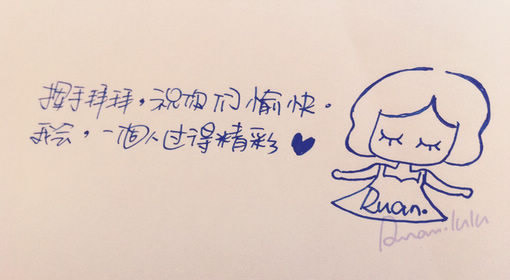 挥手拜拜,祝你们愉快.
我会,一個人过得精彩♥
Ruan.
Ruan.lulu